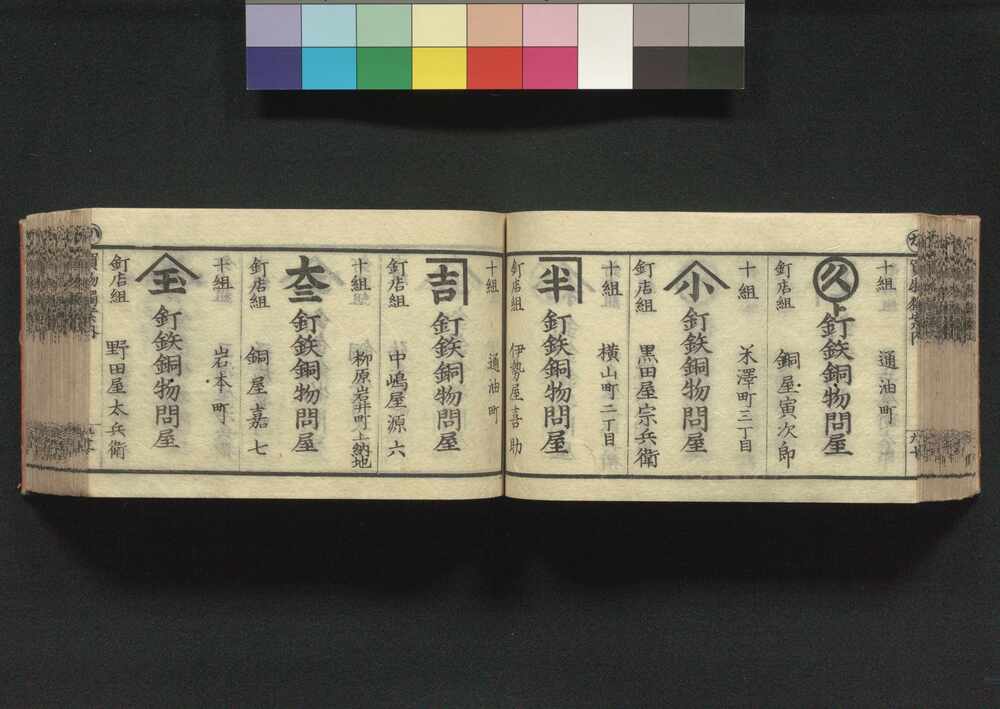 十組 通油町
久上 釘鉄銅物問屋
釘店組 銅屋寅次郎
十組 米澤町三丁目
小 釘鉄銅物問屋
釘店組 黒田屋宗兵衛
十組 横山町二丁目
半 釘鉄銅物問屋
釘店組 伊勢屋喜助
十組 通油町
吉 釘鉄銅物問屋
釘店組 中嶋屋源六
十組 柳原岩井町上納地
大三 釘鉄銅物問屋
釘店組 銅屋嘉七
十組 岩本町
玉 釘鉄銅物問屋
釘店組 野田屋太兵衛